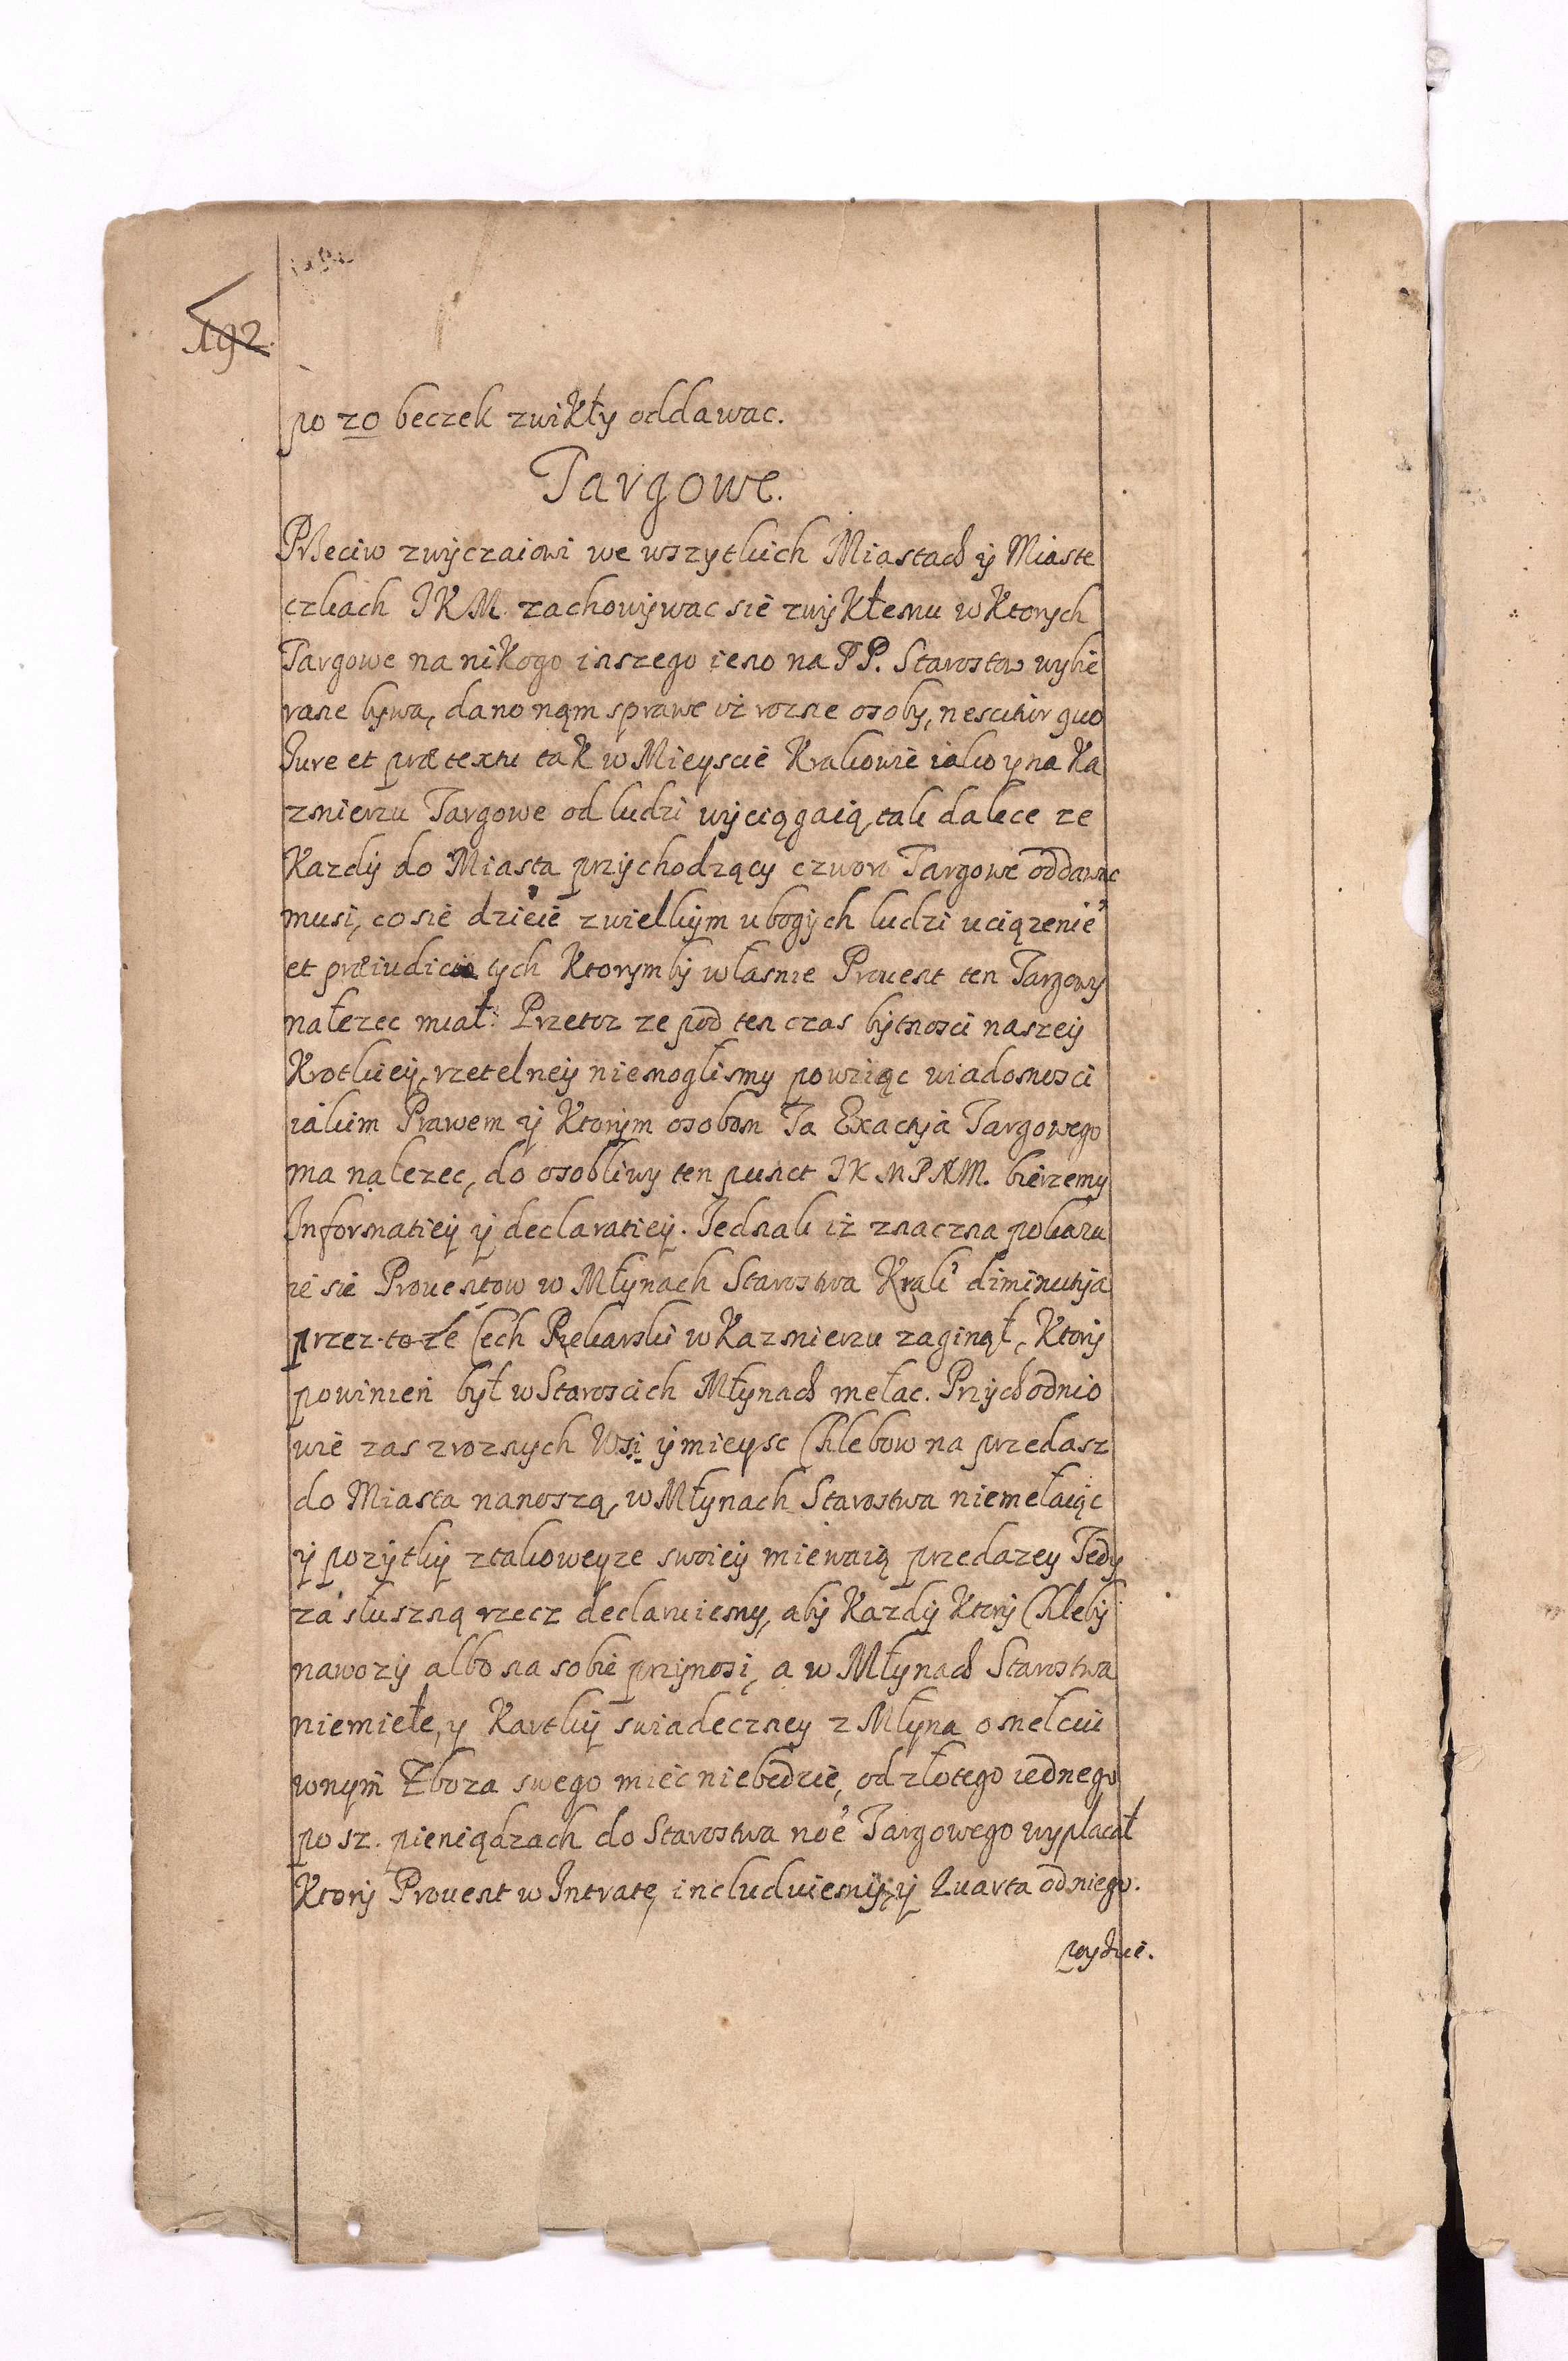 192.
po 20 beczek zwikły oddawac.
Targowe.
Przeciw zwyczaiowi we wszytkich Miastach ÿ Miaste
czkach JKM. zachowÿwac sie zwÿkłemu w Ktorych
Targowe na nikogo inszego ieno na PP. Starostow wybie
rane bywa, dano nąm sprawe iż rozne osoby, nescitur quo
Jure et prætextu tak w Mieyscie Krakowie iako y na Ka
zmierzu Targowe od ludzi wyciągaią, tak dalece ze
Kazdÿ do Miasta przÿchodzący czworo Targowe oddawac
musi, co sie dzieie z wielkÿm ubogÿch ludzi uciązenie
et præiudicio tych Ktorymbÿ własnie Prouent ten Targowy
nałezec miał. Przetoz ze pod ten czas bÿtnosci naszeÿ
Krotkieÿ, rzetelneÿ niemoglismy powziąc wiadomosci
iakim Prawem ÿ Ktorÿm osobom Ta Exactÿa Targowego
ma nalezec, do osobliwy ten punct JKMPNM. bierzemy
Informatieÿ ÿ declaratieÿ. Jednak iż znaczna pokazu
ie sie Prouentow w Młynach Starostwa Krak' diminutÿa
przez to ze Cech Piekarski w Kazmierzu zaginął, Ktorÿ
powinien był w Staroscich Młynach mełac. Przÿchodnio
wie zas z roznych Wsi ÿ mieysc Chlebow na przedasz
do Miasta nanoszą, w Młynach Starostwa niemełaiąc
ÿ pozÿtkÿ z takoweÿze swoieÿ miewaią przedazey Tedy
za słuszną rzecz declaruiemy, abÿ Kazdÿ Ktorÿ Chlebÿ
nawozÿ albo na sobie przÿnosi, a w Młynach Starostwa
niemiełe, y Kartkÿ swiadeczney z Młyna o mełciu
wnÿm Zboza swego miec niebedzie, od złotego iednego
po sz. pieniądzach do Starostwa noe Targowego wypłacał
Ktorÿ Prouent w Intratę includuiemÿ, ÿ Quarta od niego.